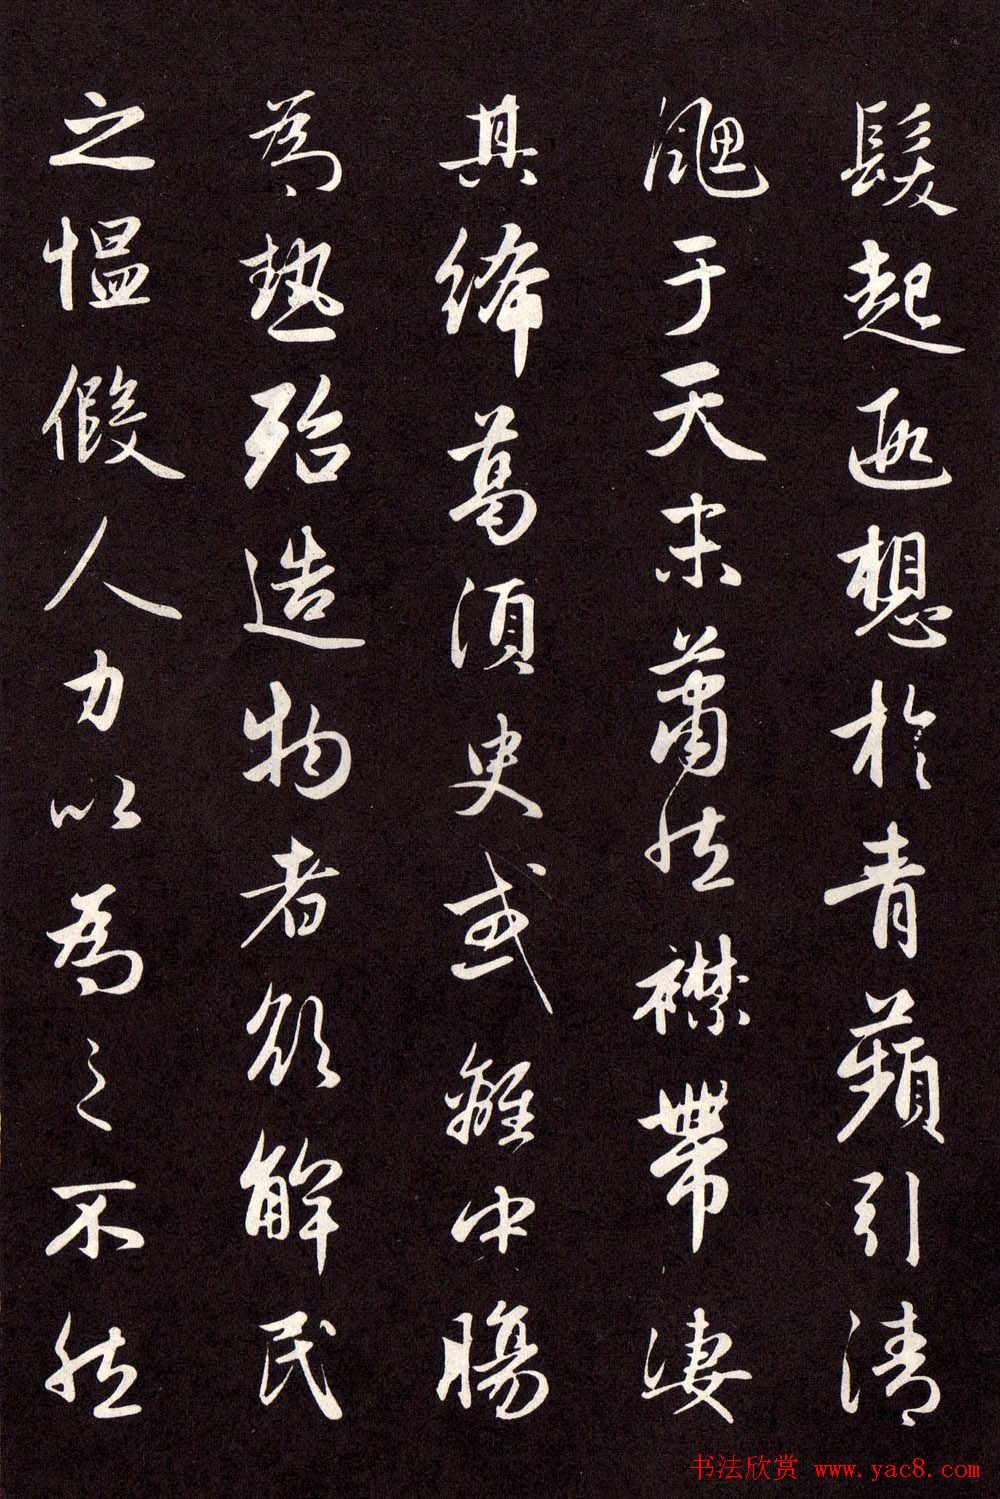 髮起遐想於青蘋引清
颸于天末蕭然襟帶淒
其絺葛須臾或離中腸
為熱殆造物者欲解民
之愠假人力以為之不然
书法欣赏 www.yac8.com